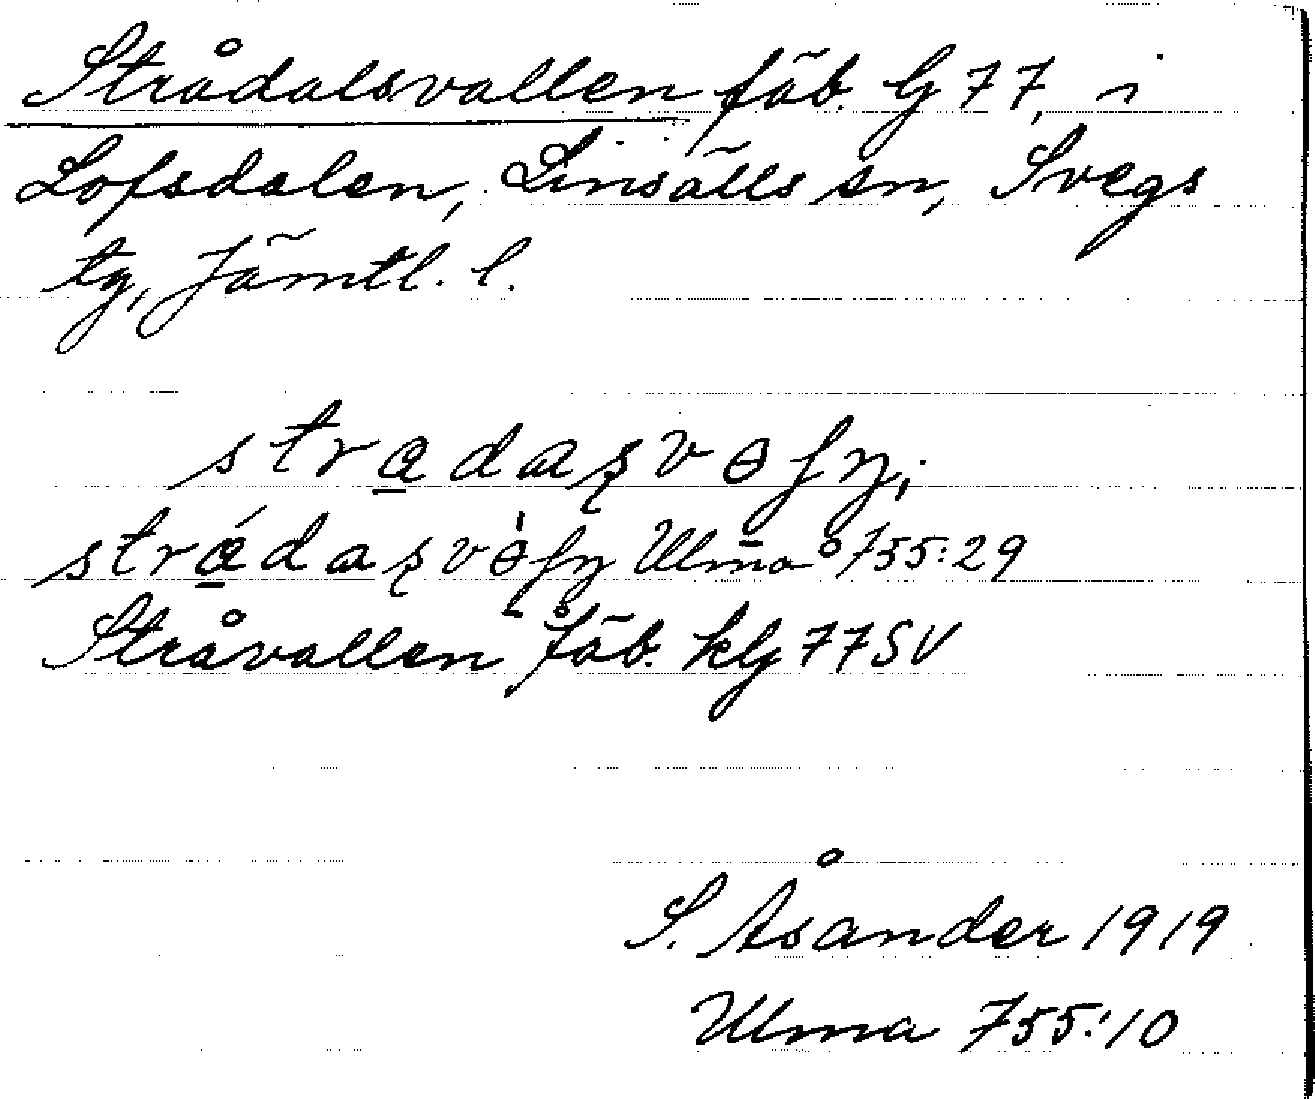 Strådalsvallen fäb. G 77, i
Lofsdalen, Linsälls sn, Svegs
tg, Jämtl. l.
Ulma 755:29
Stråvallen fäb. klg 77SV
S. Åsander 1919
Ulma 755:10